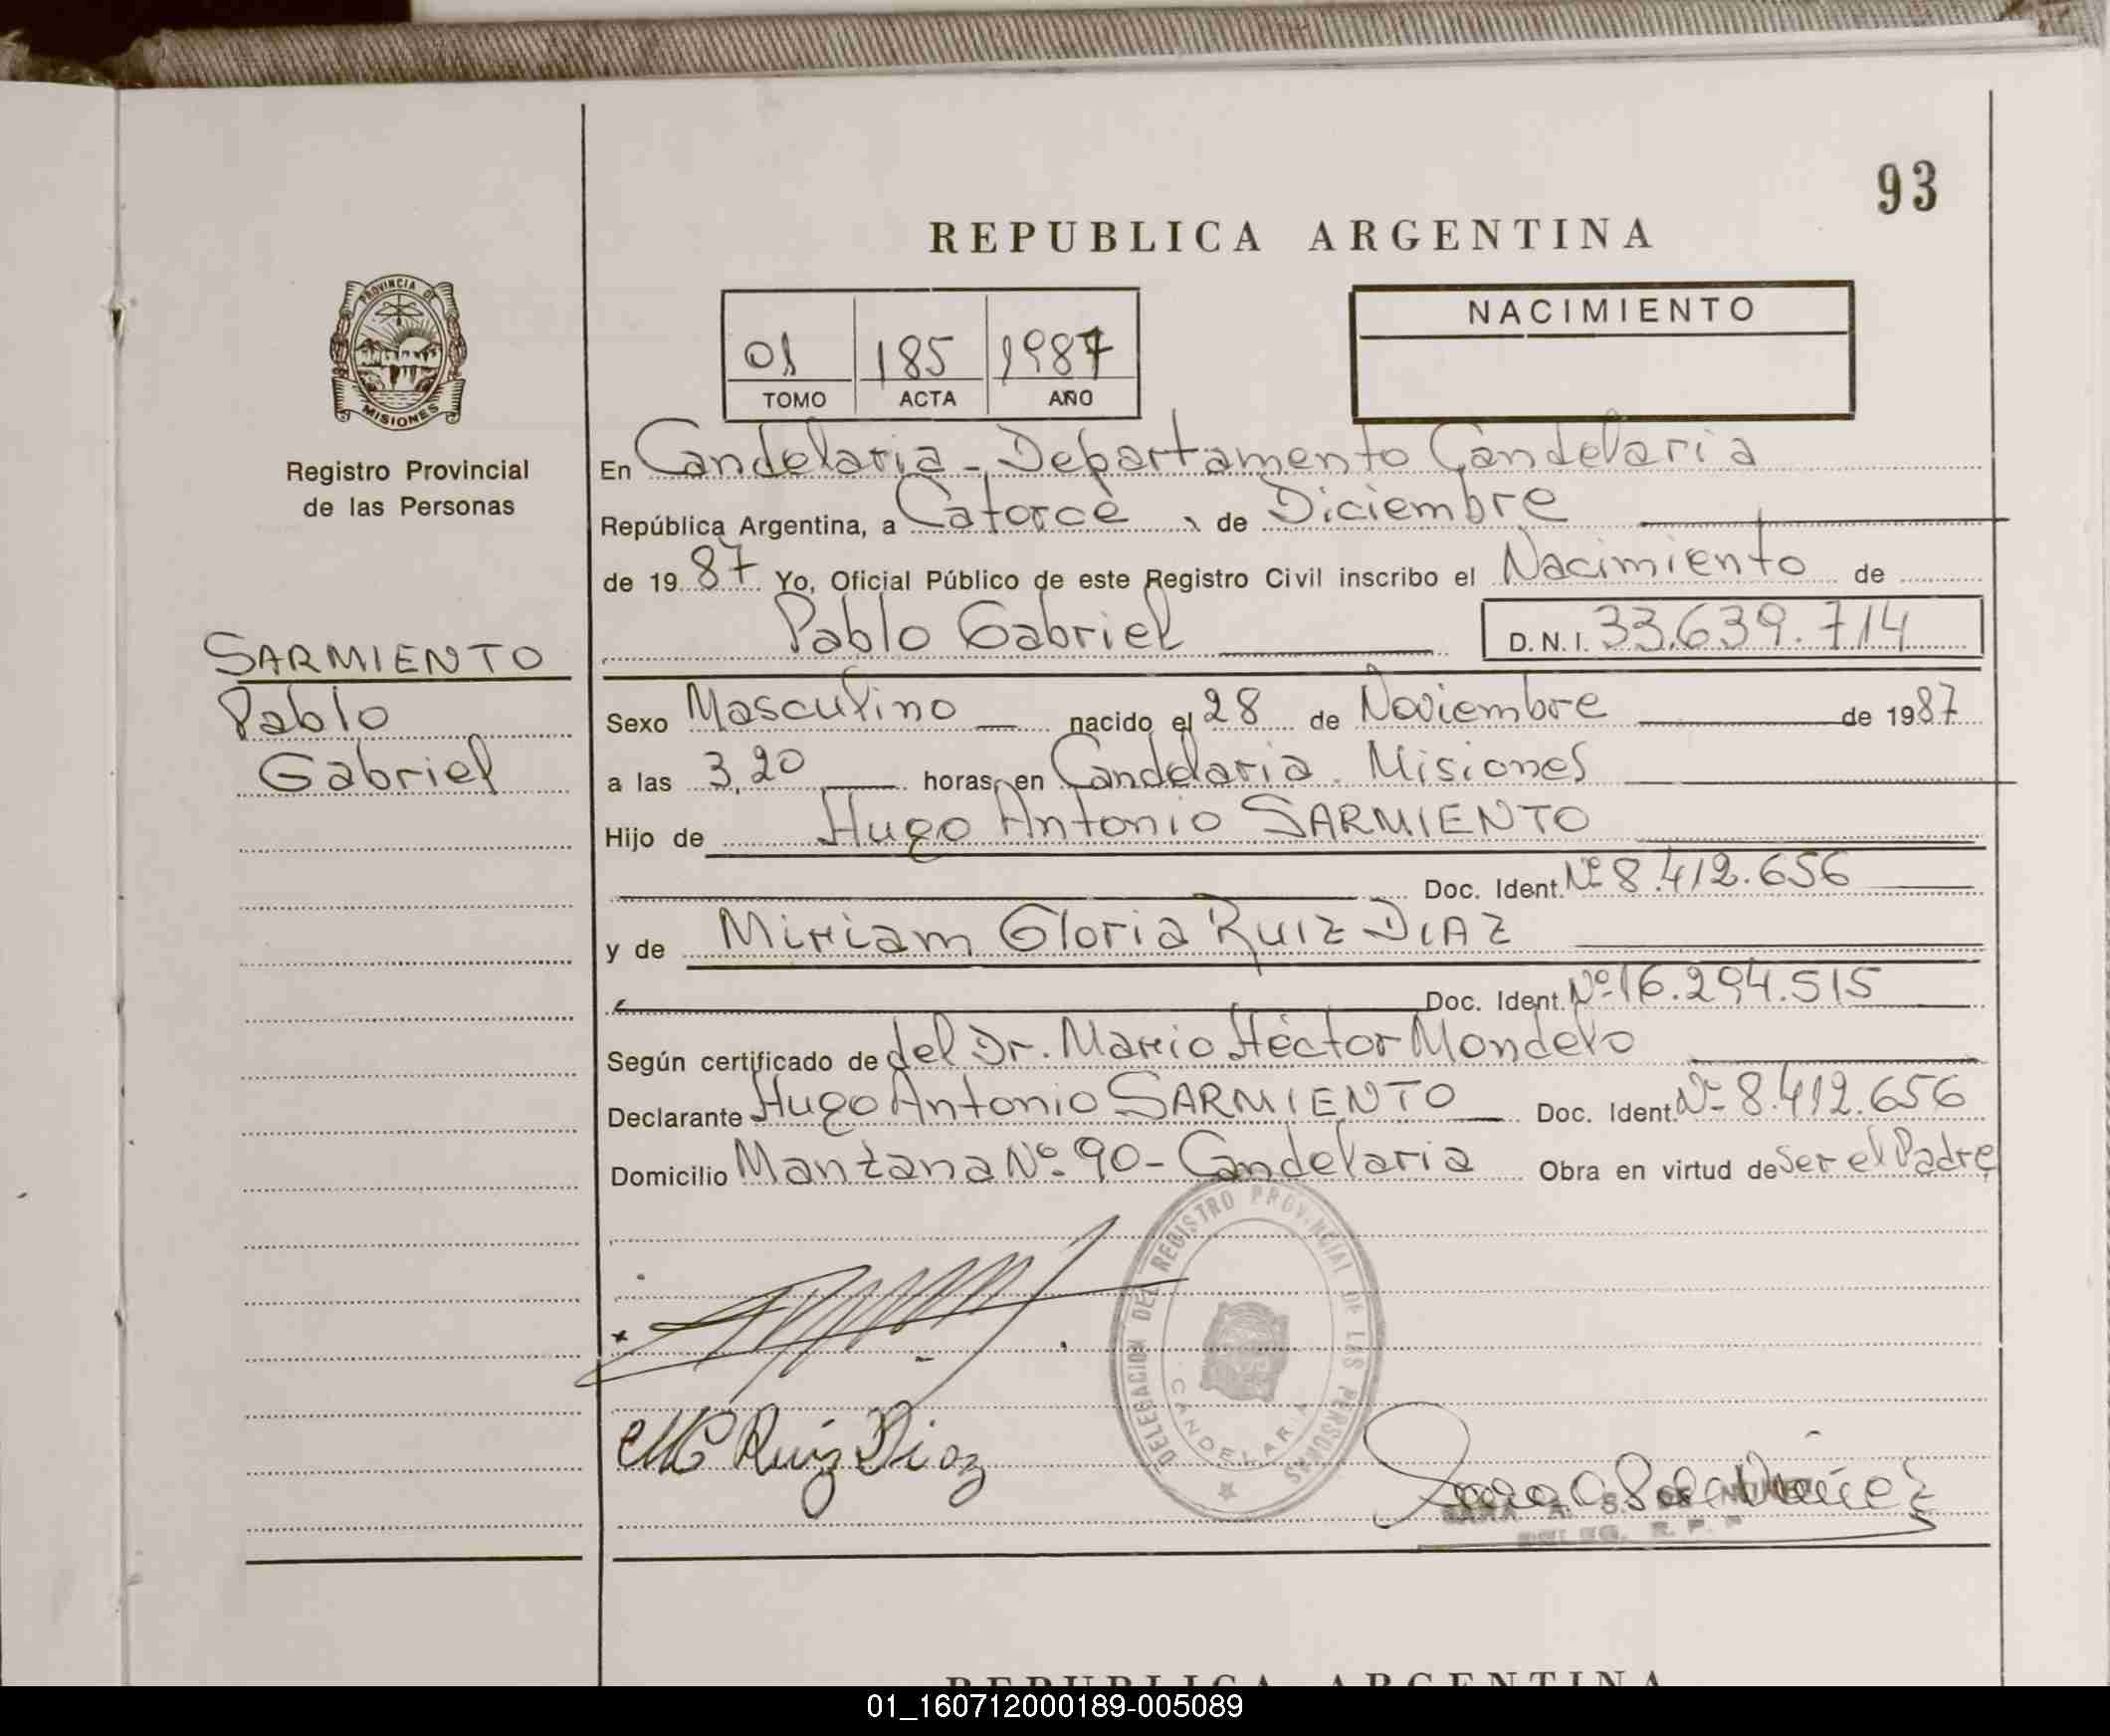 93
REPUBLICA ARGENTINA
PROVINCIA DE
MISIONES
Registro Provincial
de las Personas
SARMIENTO
Pablo
Gabriel
NACIMIENTO
01 185 1987
TOMO ACTA AÑO
En Candelaria - Departamento Candelaria
República Argentina, a Catorce de Diciembre
de 1987 Yo, Oficial Público de este Registro Civil inscribo el Nacimiento de
Pablo Gabriel D.N.I. 33.639.714
Sexo Masculino nacido el 28 de Noviembre de 1987
a las 3,20 horas, en Candelaria. Misiones
Hijo de Hugo Antonio SARMIENTO
Doc. Ident. Nº 8.412.656
y de Miriam Gloria RUIZ DIAZ
Doc. Ident. Nº 16.294.515
Según certificado de del Dr. Mario Héctor Mondelo
Declarante Hugo Antonio SARMIENTO Doc. Ident. Nº 8.412.656
Domicilio Manzana Nº 90 - Candelaria Obra en virtud de Ser el Padre
DELEGACION DEL REGISTRO PROVINCIAL DE LAS PERSONAS
CANDELARIA
MG Ruiz Diaz
SARA A. S. DE NUÑEZ
DELEG. R. P. P.
REPUBLICA ARGENTINA
01_160712000189-005089